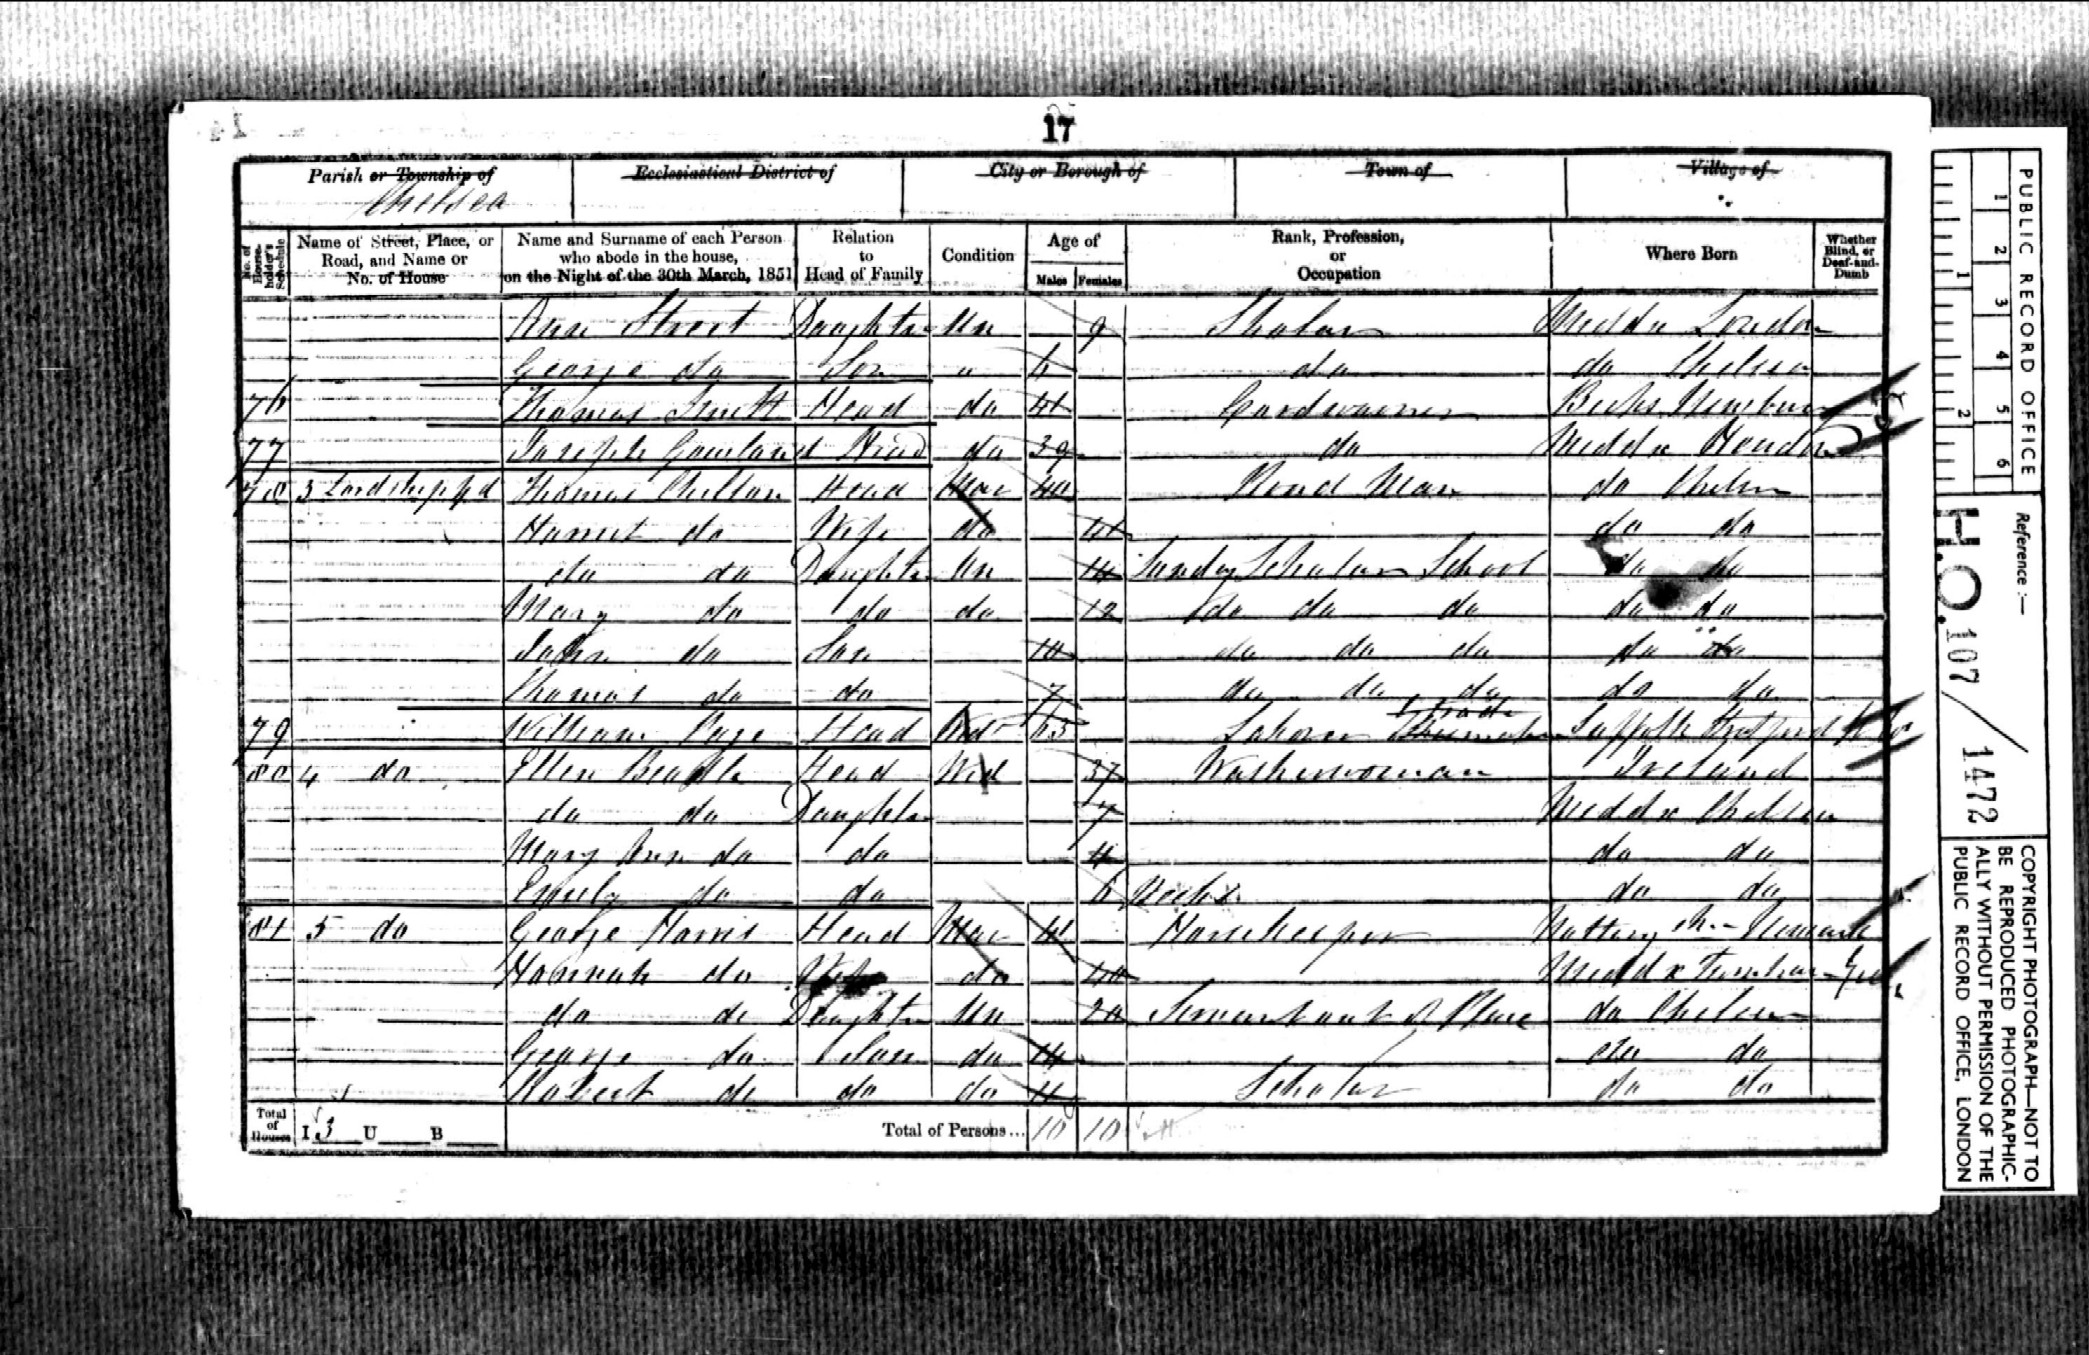 17
Parish or Township of
Chelsea
Ecclesiastical District of
City or Borough of
Town of
Village of
No. of House-holder's Schedule
Name of Street, Place, or Road, and Name or No. of House
Name and Surname of each Person who abode in the house, on the Night of the 30th March, 1851
Relation to Head of Family
Condition
Age of
Males
Females
Rank, Profession, or Occupation
Where Born
Whether Blind, or Deaf-and-Dumb
Ann Street Daughter Un 9 Scholar Middx London
George do Son " do do Chelsea
76 Thomas Smith Head do 41 Cordwainer Berks Newbury
77 Joseph Gowland Head do 39 do Middx Hendon
78 3 Lordship Pd Thomas Chilton Head Mar 40 Road Man do Chelsea
Harriet do Wife do 41 do do
do do Daughter Un 14 Sunday Scholar School do do
Mary do do do 12 do do do do do
John do Son 10 do do do do do
Thomas do do 7 do do do do do
79 William Page Head 63 Labourer Suffolk
80 4 do Ellen Beadle Head Wid 37 Washerwoman Ireland
do do Daughter 7 Middx Chelsea
Mary Ann do do 4 do do
Emily do do 6 Weeks do do
81 5 do George Harris Head Mar 41 Horsekeeper Newark
Hannah do Wife do 40 Middx Turnham Green
do do Daughter Un 20 Servant out of Place do Chelsea
George do Son do 14 do do
Robert do do do 11 Scholar do do
Total of Houses I 3 U B
Total of Persons... 10 10
PUBLIC RECORD OFFICE
1 2 3 4 5 6
1 2
Reference :—
H.O. 107 / 1472
COPYRIGHT PHOTOGRAPH—NOT TO
BE REPRODUCED PHOTOGRAPHIC-
ALLY WITHOUT PERMISSION OF THE
PUBLIC RECORD OFFICE, LONDON